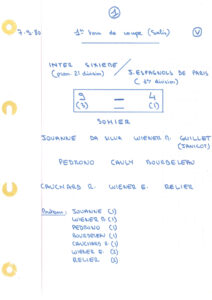 1
7.9.80 1er tour de coupe (Salis) V
INTER SIXIEME / J. ESPAGNOLS DE PARIS
(prom. 2è division) (3è division)
9 = 4
(3) (1)
SOHIER
JOUANNE DA SILVA WIENER D. GUILLET
(JANICOT)
PEDRONO CAULY BOURDELEAU
CAUCHARD R. WIENER E. RELIER
Buteurs : JOUANNE (1)
WIENER D. (1)
PEDRONO (1)
BOURDELEAU (1)
CAUCHARD R. (1)
WIENER E. (2)
RELIER (2)